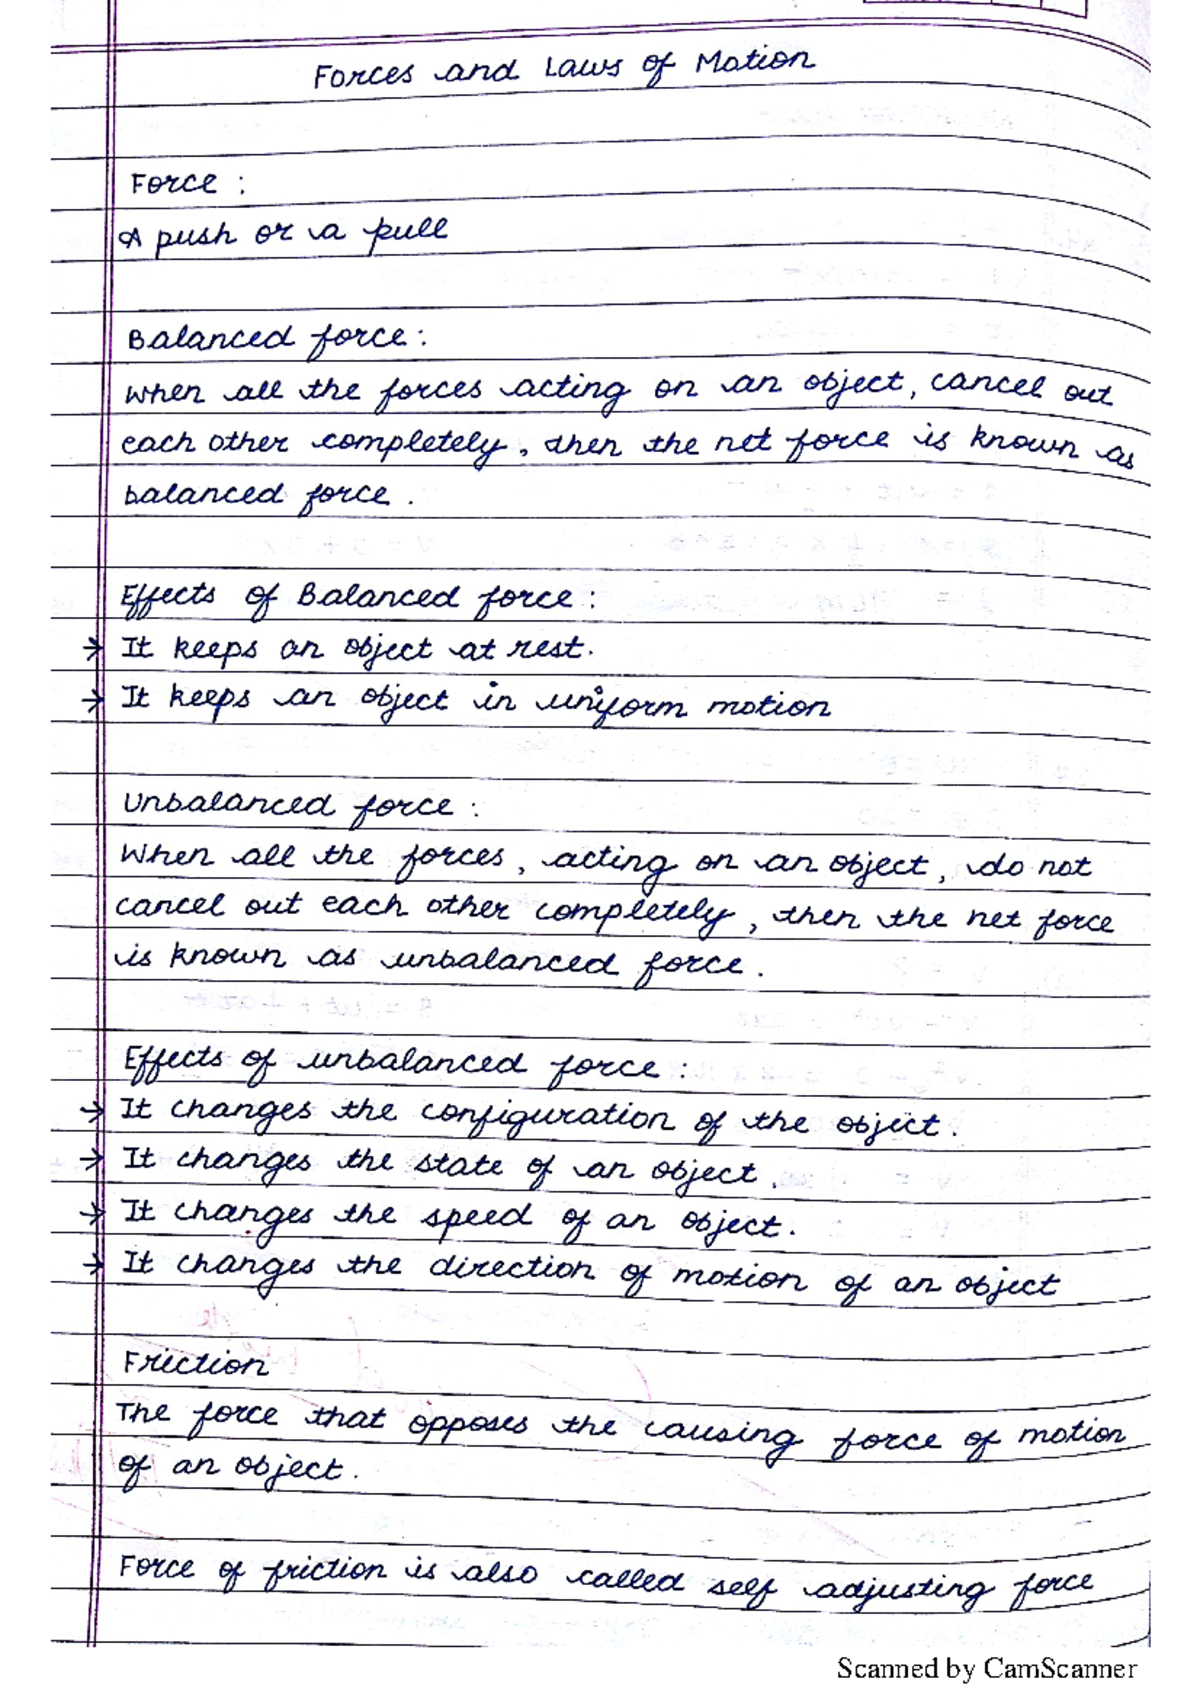 Forces and Laws of Motion
Force :
A push or a pull
Balanced force :
When all the forces acting on an object, cancel out
each other completely, then the net force is known as
balanced force.
Effects of Balanced force :
→ It keeps an object at rest.
→ It keeps an object in uniform motion
Unbalanced force :
When all the forces, acting on an object, do not
cancel out each other completely, then the net force
is known as unbalanced force.
Effects of unbalanced force :
→ It changes the configuration of the object.
→ It changes the state of an object.
→ It changes the speed of an object.
→ It changes the direction of motion of an object
Friction
The force that opposes the causing force of motion
of an object.
Force of friction is also called self adjusting force
Scanned by CamScanner